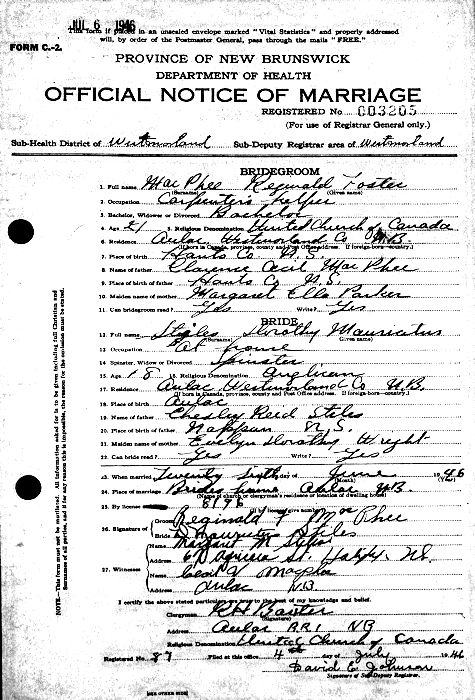 JUL 6 1946
This form if placed in an unsealed envelope marked "Vital Statistics" and properly addressed
will, by order of the Postmaster General, pass through the mails "FREE."
FORM C.-2.
PROVINCE OF NEW BRUNSWICK
DEPARTMENT OF HEALTH
OFFICIAL NOTICE OF MARRIAGE
REGISTERED No 003205
(For use of Registrar General only.)
Sub-Health District of Westmorland Sub-Deputy Registrar area of Westmorland
BRIDEGROOM
1. Full name MacPhee Reginald Foster
(Surname) (Given name)
2. Occupation Carpenters helper
3. Bachelor, Widower or Divorced Bachelor
4. Age 21 5. Religious Denomination United Church of Canada
6. Residence Aulac Westmorland Co N.B.
(If born in Canada, province, county and Post Office address. If foreign-born—country.)
7. Place of birth Hants Co N.S.
8. Name of father Clarence Cecil MacPhee
9. Place of birth of father Hants Co N.S.
10. Maiden name of mother Margaret Ella Parker
11. Can bridegroom read? Yes Write? Yes
BRIDE
12. Full name Stiles Dorothy Mauricetus
(Surname) Given name)
13. Occupation At home
14. Spinster, Widow or Divorced Spinster
15. Age 18 16. Religious Denomination Anglican
17. Residence Aulac Westmorland Co N.B.
(If born in Canada, province, county and Post Office address. If foreign-born—country.)
18. Place of birth Aulac
19. Name of father Chesley Reid Stiles
20. Place of birth of father Nappan N.S.
21. Maiden name of mother Evelyn Dorothy Wright
22. Can bride read? Yes Write? Yes
23. When married Twenty sixth day of June 1946
(Month) (Year)
24. Place of marriage Brides home Aulac N.B.
(Name of church or clergyman's residence or location of dwelling house)
25. By license 8196
(If by license give number)
26. Signature of Groom Reginald F MacPhee
Bride D Mauricetus Stiles
27. Witnesses Name Margaret M
Address St. Halifax N.S.
Name
Address Aulac N.B.
I certify the above stated particulars are true to the best of my knowledge and belief.
Clergyman R H Baxter
(Signature)
Address Aulac RR1 NB
Religious Denomination United Church of Canada
Registered No. 87 Filed at this office 4th day of July 1946
David E Johnson
Signature of Sub-Deputy Registrar.
(SEE OTHER SIDE)
NOTE—This form must not be mutilated. All information asked for is to be given including full Christian and
Surnames of all parties, and if for any reason this is impossible, the reason for the omission must be stated.